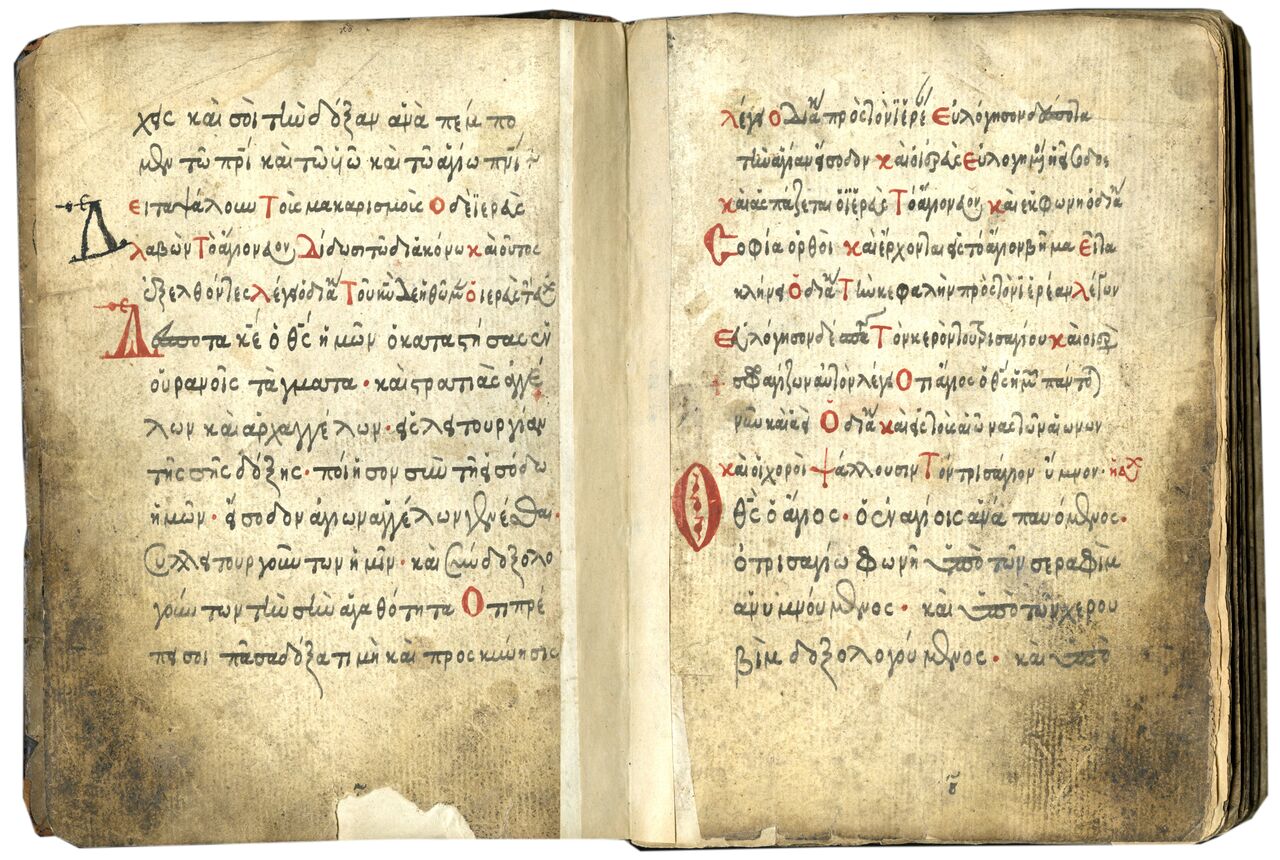 χ(ου)ς καὶ σοὶ τὴν δόξαν ἀνα πέμπο
μεν τῶ πρὶ καὶ τῶ υἱῶ καὶ τῶ ἁγίω πνι
Εἶτα ψάλουν Τοῖς μακαρισμοῖς Ο δὲ ἱερεὺς
λαβὼν Τὸ ἅγιον Δίδωσι τῶ διακόνω καὶ οὕτος
ἐξελθόντες λέγει ὁ διακ Τοῦ κυ δεηθῶμ ὁ ἱερεὺς
Δέσποτα κε ὁ θς ἡμῶν ὁ καταστήσας ἐν
οὐρανοῖς τάγματα · καὶ στρατιὰς ἀγγέ
λων καὶ ἀρχαγγέλων · εἰς λειτουργίαν
τῆς σῆς δόξης · ποίησον σὺν τῆ εἰσόδω
ἡμῶν · εἴσοδον ἁγίων ἀγγέλων γενέσθαι ·
συλλειτουργούντων ἡμῖν · καὶ συνδοξολο
γούντων τὴν σὴν ἀγαθότητα Ὅτι πρέ
πει σοι πᾶσα δόξα τιμὴ καὶ προσκύνησις
λέγει Ο διακ πρὸς τὸν ἱερέ Εὐλόγησον δέσποτα
τὴν ἁγίαν εἴσοδον καὶ ὁ ἱερεὺς Εὐλογημ ἡ εἴσοδος
καὶ ἀσπάζεται ὁ ἱερεὺς Τὸ ἅγιον καὶ ἐκφωνῆ ὁ διακ
Σοφία ὀρθοί καὶ ἔρχονται εἰς τὸ ἅγιον βῆμα Εἶτα
κλήνει Ὁ διακ Τὴν κεφαλὴν πρὸς τὸν ἱερέαν λέγων
Εὐλόγησον δέσποτα Τὸν κερὸν τοῦ τρισαγίου καὶ ὁ ἱερ
σφραγίζων αὐτὸν λέγει Ὅτι ἅγιος ὁ θς ἡμ πάντο
νῦν καὶ ἀεὶ Ὁ διακ καὶ εἰς τοὺς αἰῶνας τῶν αἰώνων
καὶ οἱ χοροὶ ψάλλουσιν Τὸν τρισάγιον ὕμνον · ἡ εὐχ
Ὁ θς ὁ ἅγιος · ὁ ἐν ἁγίοις ἀναπαυόμενος ·
ὁ τρισαγίω φωνῆ ὑπὸ τῶν σεραφὶμ
ἀνυμνούμενος · καὶ ὑπὸ τῶν χερου
βὶμ δοξολογούμενος · καὶ ὑπὸ